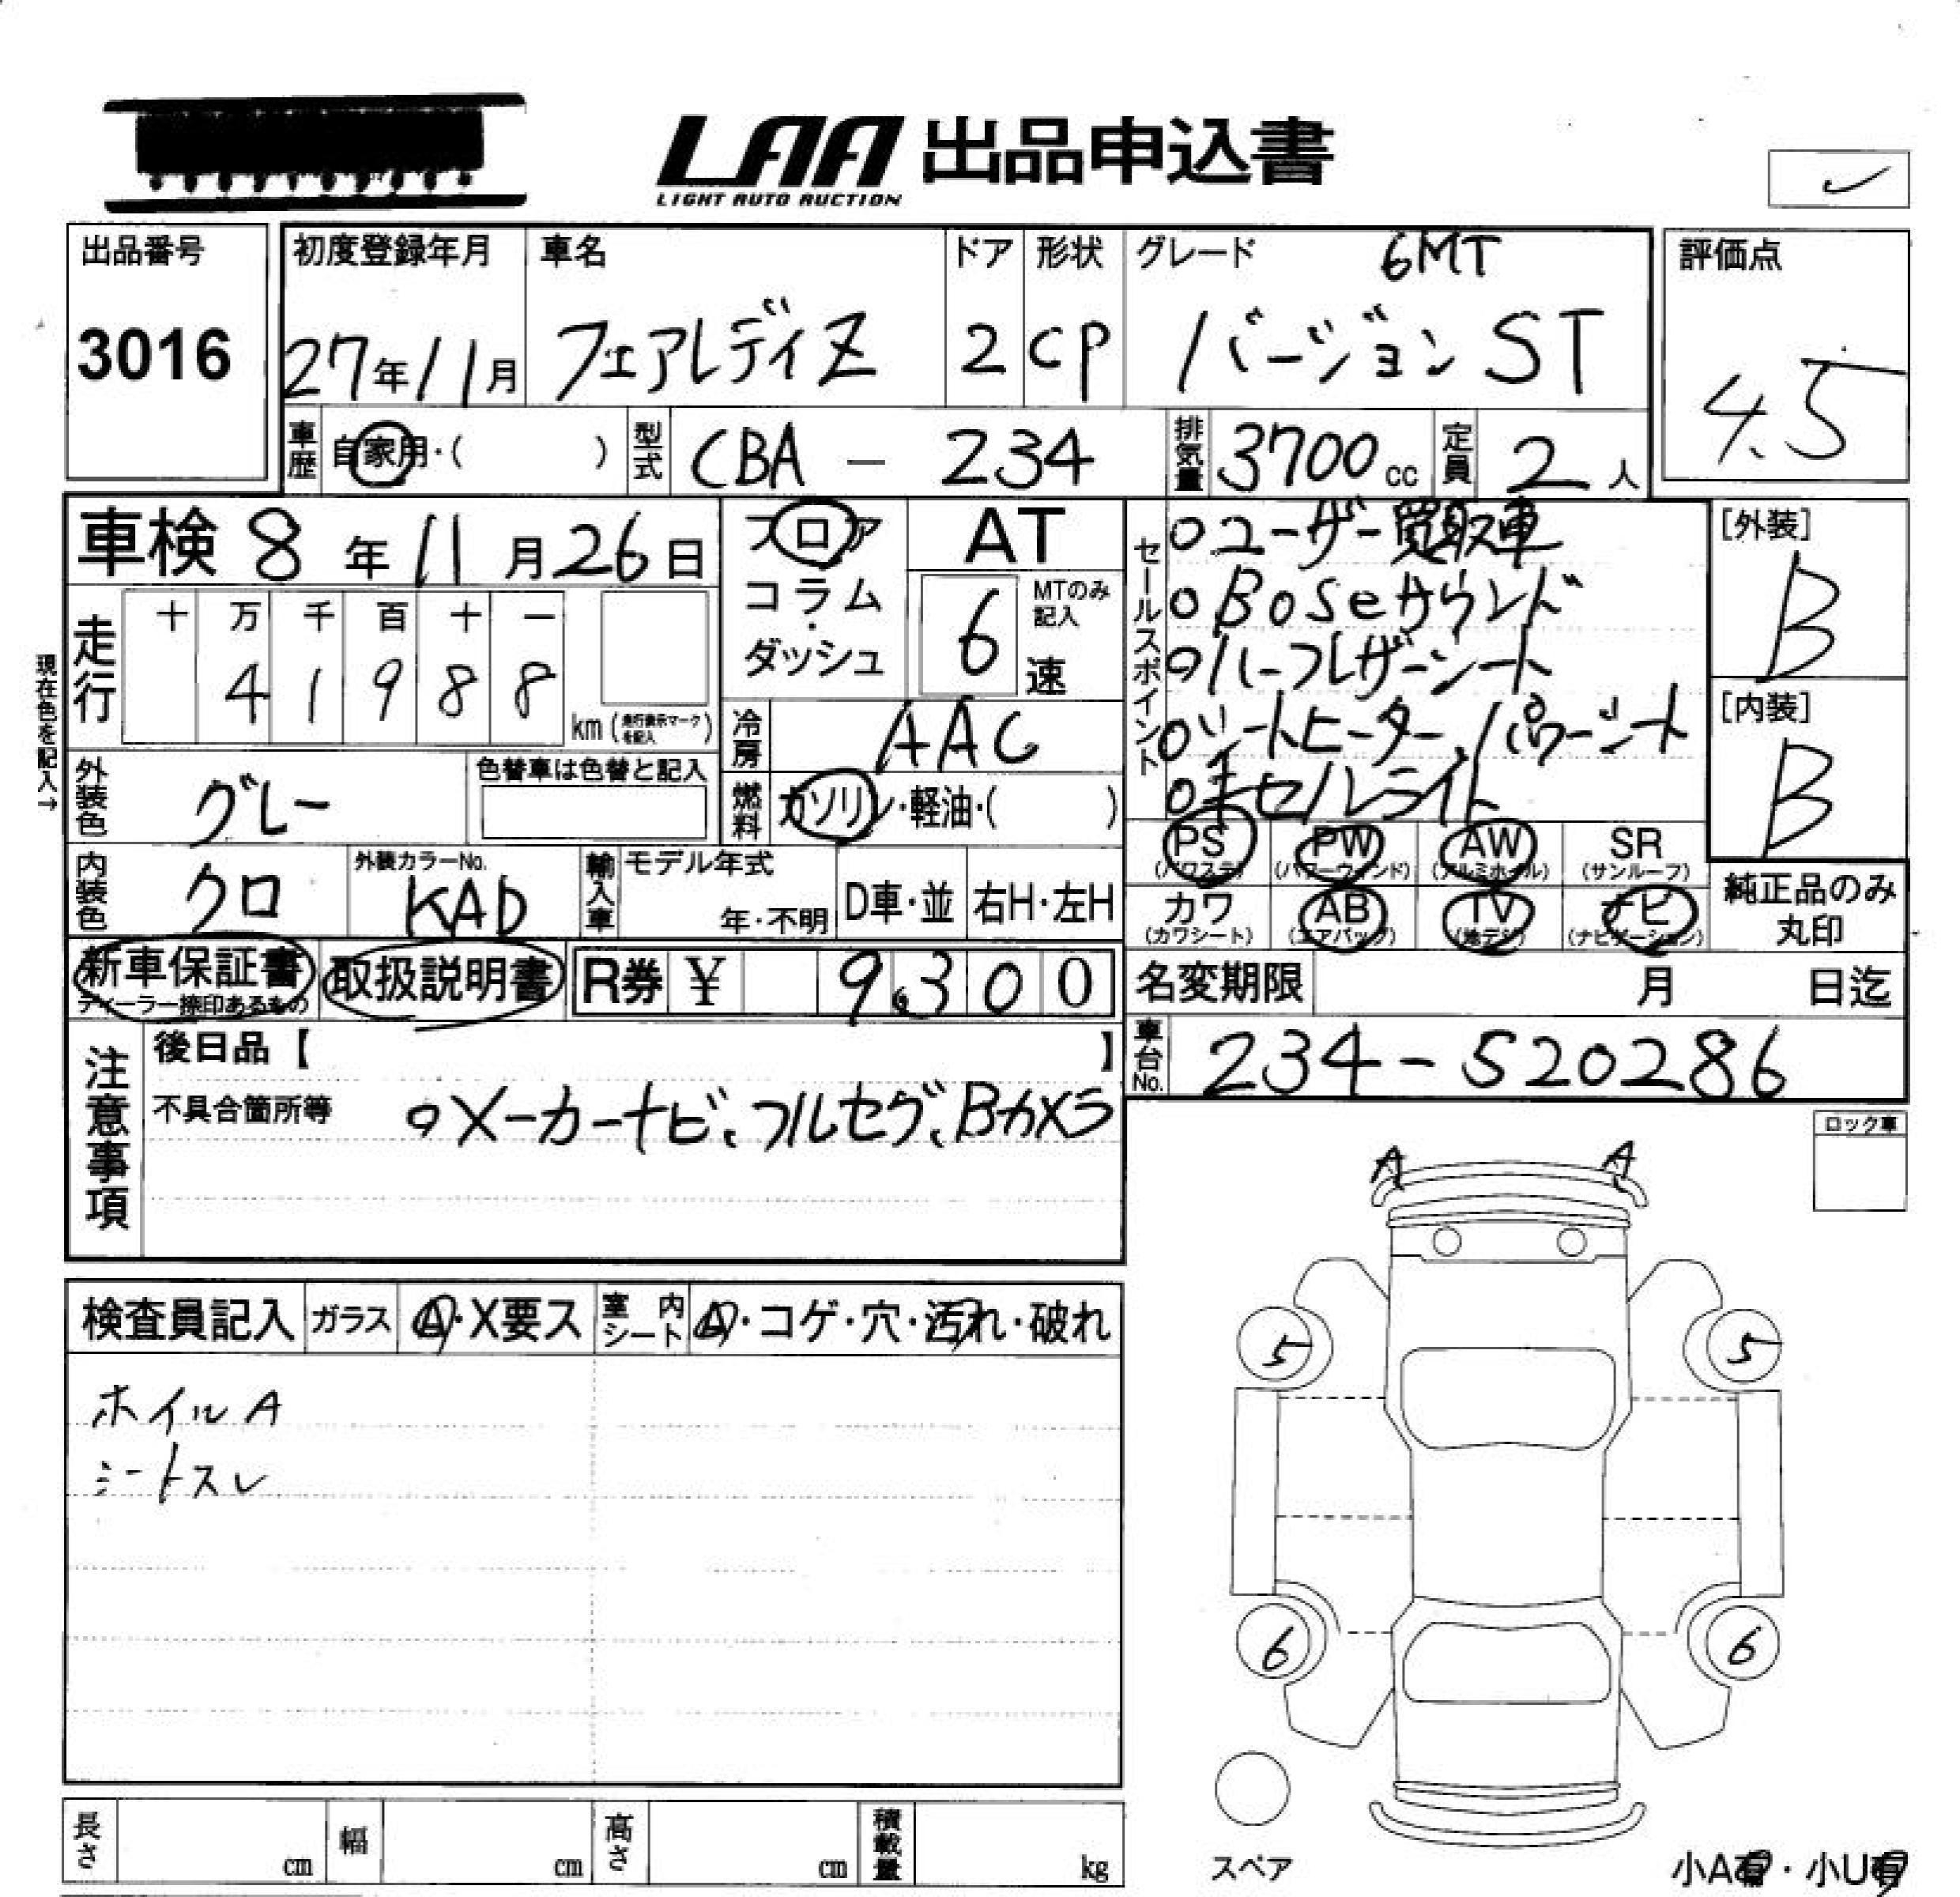 LAA 出品申込書
LIGHT AUTO AUCTION
出品番号
3016
初度登録年月
27年11月
車名
フェアレディZ
ドア
2
形状
CP
グレード 6MT
バージョンST
評価点
4.5
車歴 自家用・( )
型式 CBA - Z34
排気量 3700cc
定員 2人
車検 8年11月26日
フロア
コラム・
ダッシュ
AT
6速
MTのみ記入
セールスポイント
○ユーザー買取車
○BOSEサウンド
○ハーフレザーシート
○シートヒーター、パワーシート
○キセルライト
[外装]
B
[内装]
B
現在色を記入→
走行
十 万 千 百 十 一
4 1 9 8 8
km (走行表示マークを記入)
冷房 AAC
外装色 グレー
色替車は色替と記入
燃料 ガソリン・軽油・( )
PS (パワステ)
PW (パワーウィンド)
AW (アルミホイル)
SR (サンルーフ)
内装色 クロ
外装カラーNo.
KAD
輸入車
モデル年式
年・不明
D車・並
右H・左H
カワ (カワシート)
AB (エアバッグ)
TV (地デジ)
ナビ (ナビゲーション)
純正品のみ
丸印
新車保証書
ディーラー捺印あるもの
取扱説明書
R券 ¥ 9,300
名変期限 月 日迄
車台No. Z34-520286
注意事項
後日品【 】
不具合箇所等 ○メーカーナビ、フルセグ、Bカメラ
ロック車
A A
検査員記入
ガラス A・X要ス
室内シート A・コゲ・穴・汚れ・破れ
ホイルA
シートスレ
5 5
6 6
スペア
長さ cm
幅 cm
高さ cm
積載量 kg
小A有・小U有